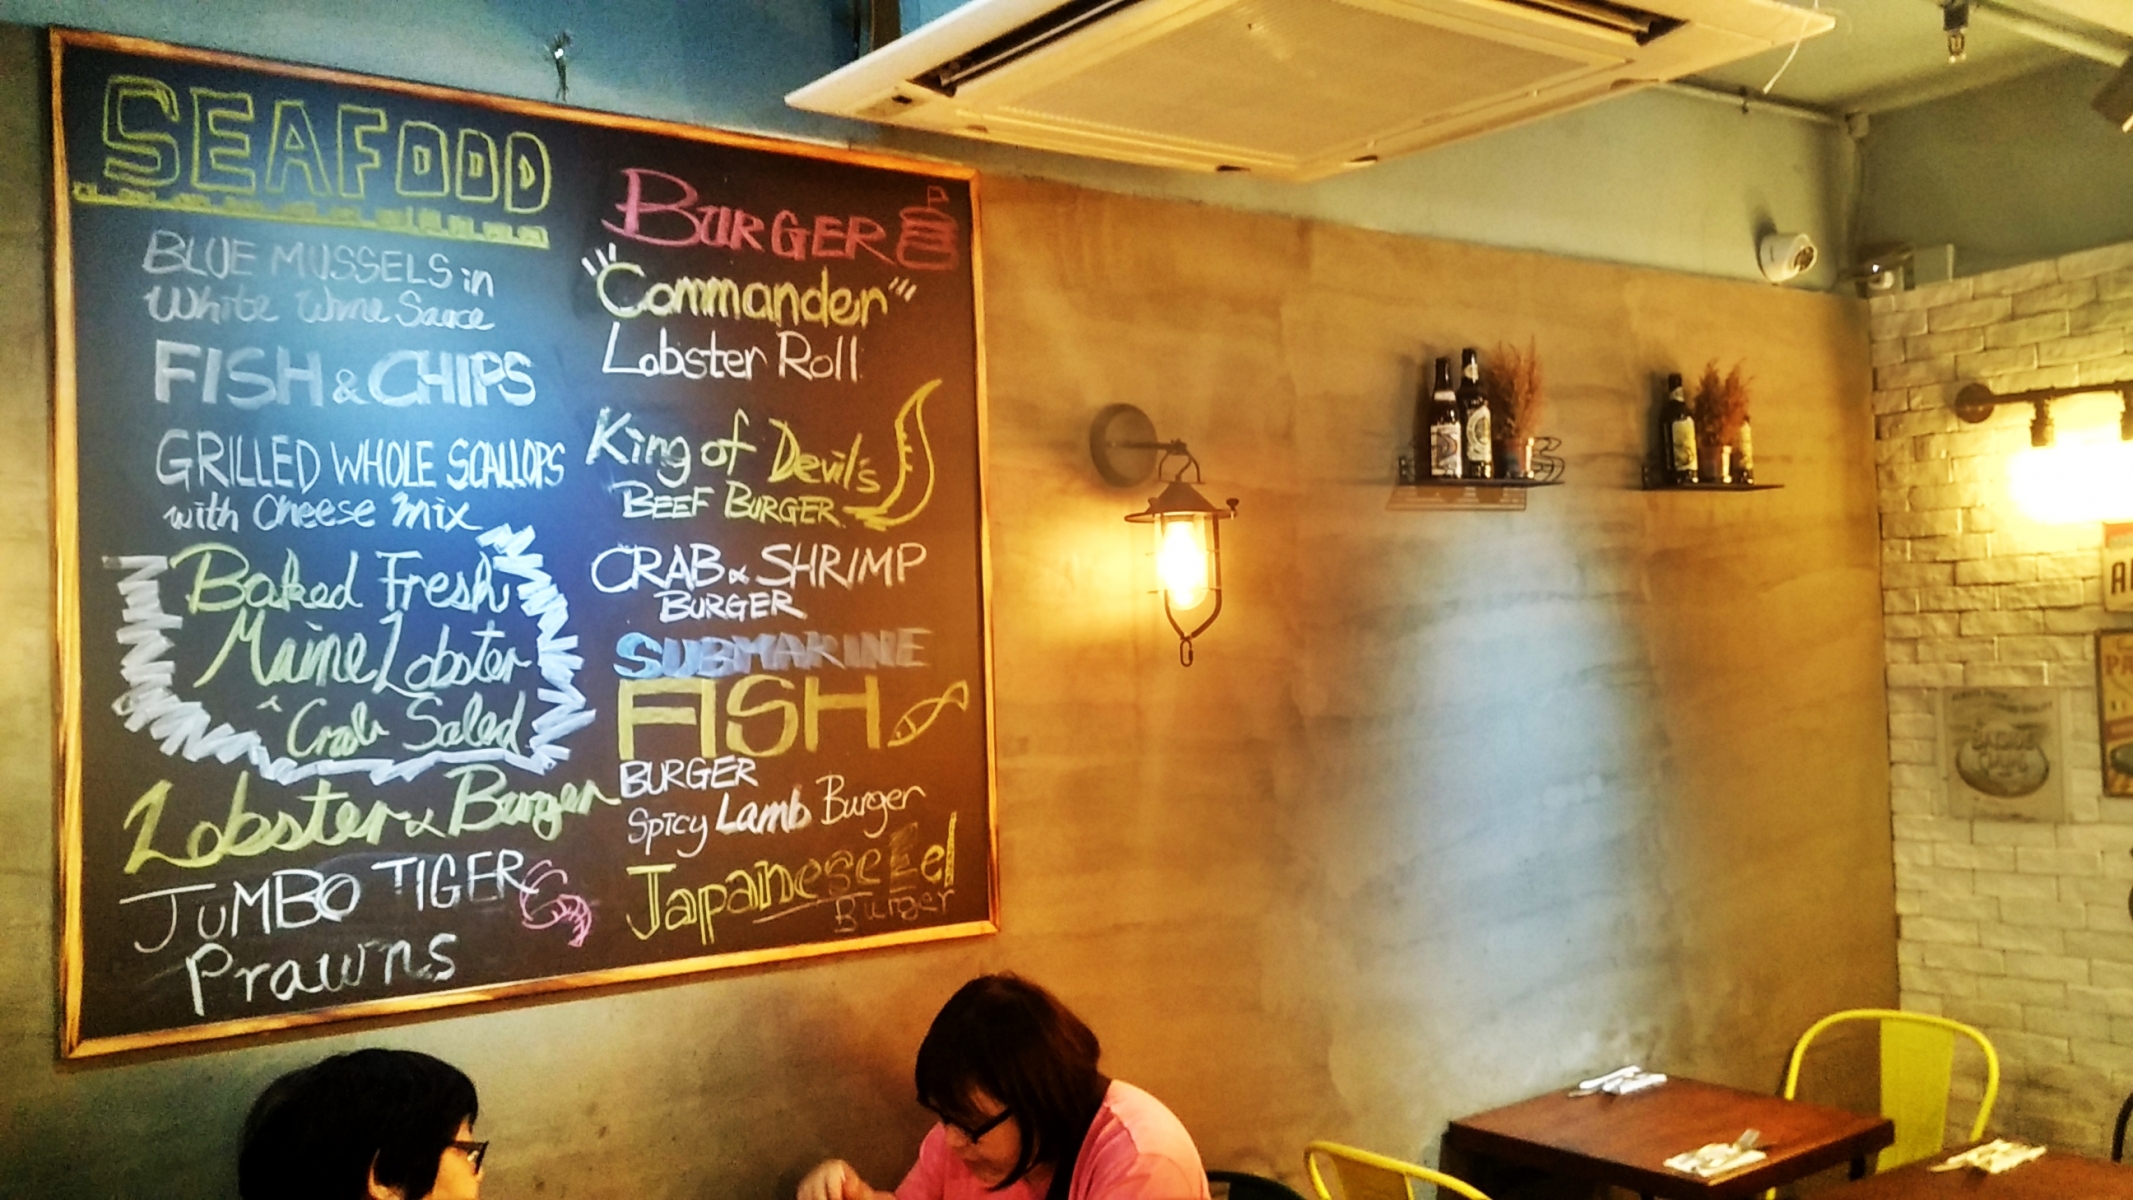 SEAFOOD
BLUE MUSSELS in
White Wine Sauce
FISH & CHIPS
GRILLED WHOLE SCALLOPS
with Cheese Mix
Baked Fresh
Maine Lobster
Crab Salad
Lobster & Burger
JUMBO TIGER
Prawns
BURGER
"Commander"
Lobster Roll
King of Devil's
BEEF BURGER
CRAB & SHRIMP
BURGER
SUBMARINE
FISH
BURGER
Spicy Lamb Burger
Japanese Eel
Burger